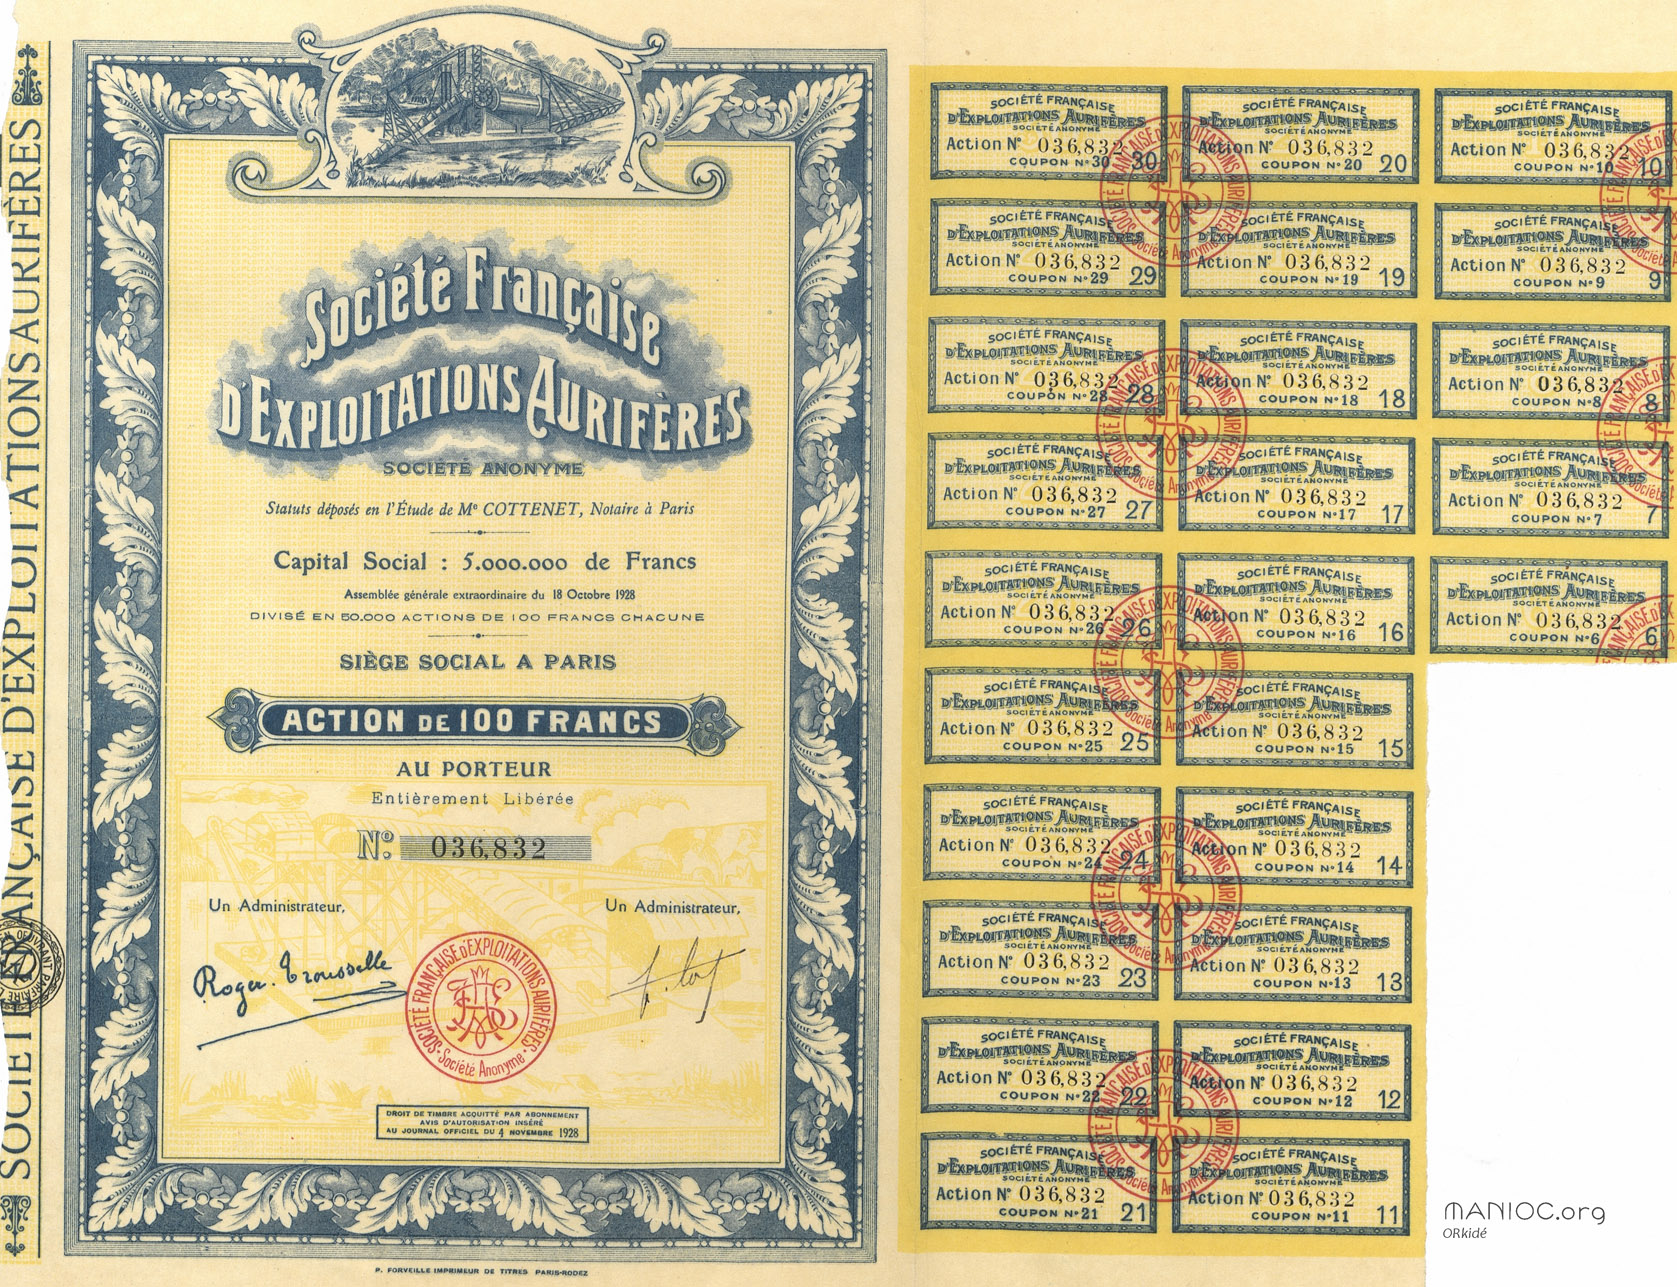 SOCIÉTÉ FRANÇAISE D'EXPLOITATIONS AURIFÈRES
Société Française
D'EXPLOITATIONS AURIFÈRES
SOCIÉTÉ ANONYME
Statuts déposés en l'Étude de Me COTTENET, Notaire à Paris
Capital Social : 5.000.000 de Francs
Assemblée générale extraordinaire du 18 Octobre 1928
DIVISÉ EN 50.000 ACTIONS DE 100 FRANCS CHACUNE
SIÈGE SOCIAL A PARIS
ACTION DE 100 FRANCS
AU PORTEUR
Entièrement Libérée
No. 036,832
Un Administrateur, Un Administrateur,
Roger Trousselle
SOCIÉTÉ FRANÇAISE D'EXPLOITATIONS AURIFÈRES
Société Anonyme
DROIT DE TIMBRE ACQUITTÉ PAR ABONNEMENT
AVIS D'AUTORISATION INSÉRÉ
AU JOURNAL OFFICIEL DU 4 NOVEMBRE 1928
P. FORVEILLE IMPRIMEUR DE TITRES PARIS-RODEZ
SOCIÉTÉ FRANÇAISE SOCIÉTÉ FRANÇAISE SOCIÉTÉ FRANÇAISE
D'EXPLOITATIONS AURIFÈRES D'EXPLOITATIONS AURIFÈRES D'EXPLOITATIONS AURIFÈRES
SOCIÉTÉ ANONYME SOCIÉTÉ ANONYME SOCIÉTÉ ANONYME
Action No 036,832 Action No 036,832 Action No 036,832
COUPON No 30 30 COUPON No 20 20 COUPON No 10 10
SOCIÉTÉ FRANÇAISE SOCIÉTÉ FRANÇAISE SOCIÉTÉ FRANÇAISE
D'EXPLOITATIONS AURIFÈRES D'EXPLOITATIONS AURIFÈRES D'EXPLOITATIONS AURIFÈRES
SOCIÉTÉ ANONYME SOCIÉTÉ ANONYME SOCIÉTÉ ANONYME
Action No 036,832 Action No 036,832 Action No 036,832
COUPON No 29 29 COUPON No 19 19 COUPON No 9 9
SOCIÉTÉ FRANÇAISE SOCIÉTÉ FRANÇAISE SOCIÉTÉ FRANÇAISE
D'EXPLOITATIONS AURIFÈRES D'EXPLOITATIONS AURIFÈRES D'EXPLOITATIONS AURIFÈRES
SOCIÉTÉ ANONYME SOCIÉTÉ ANONYME SOCIÉTÉ ANONYME
Action No 036,832 Action No 036,832 Action No 036,832
COUPON No 28 28 COUPON No 18 18 COUPON No 8 8
SOCIÉTÉ FRANÇAISE SOCIÉTÉ FRANÇAISE SOCIÉTÉ FRANÇAISE
D'EXPLOITATIONS AURIFÈRES D'EXPLOITATIONS AURIFÈRES D'EXPLOITATIONS AURIFÈRES
SOCIÉTÉ ANONYME SOCIÉTÉ ANONYME SOCIÉTÉ ANONYME
Action No 036,832 Action No 036,832 Action No 036,832
COUPON No 27 27 COUPON No 17 17 COUPON No 7 7
SOCIÉTÉ FRANÇAISE SOCIÉTÉ FRANÇAISE SOCIÉTÉ FRANÇAISE
D'EXPLOITATIONS AURIFÈRES D'EXPLOITATIONS AURIFÈRES D'EXPLOITATIONS AURIFÈRES
SOCIÉTÉ ANONYME SOCIÉTÉ ANONYME SOCIÉTÉ ANONYME
Action No 036,832 Action No 036,832 Action No 036,832
COUPON No 26 26 COUPON No 16 16 COUPON No 6 6
SOCIÉTÉ FRANÇAISE SOCIÉTÉ FRANÇAISE
D'EXPLOITATIONS AURIFÈRES D'EXPLOITATIONS AURIFÈRES
SOCIÉTÉ ANONYME SOCIÉTÉ ANONYME
Action No 036,832 Action No 036,832
COUPON No 25 25 COUPON No 15 15
SOCIÉTÉ FRANÇAISE SOCIÉTÉ FRANÇAISE
D'EXPLOITATIONS AURIFÈRES D'EXPLOITATIONS AURIFÈRES
SOCIÉTÉ ANONYME SOCIÉTÉ ANONYME
Action No 036,832 Action No 036,832
COUPON No 24 24 COUPON No 14 14
SOCIÉTÉ FRANÇAISE SOCIÉTÉ FRANÇAISE
D'EXPLOITATIONS AURIFÈRES D'EXPLOITATIONS AURIFÈRES
SOCIÉTÉ ANONYME SOCIÉTÉ ANONYME
Action No 036,832 Action No 036,832
COUPON No 23 23 COUPON No 13 13
SOCIÉTÉ FRANÇAISE SOCIÉTÉ FRANÇAISE
D'EXPLOITATIONS AURIFÈRES D'EXPLOITATIONS AURIFÈRES
SOCIÉTÉ ANONYME SOCIÉTÉ ANONYME
Action No 036,832 Action No 036,832
COUPON No 22 22 COUPON No 12 12
SOCIÉTÉ FRANÇAISE SOCIÉTÉ FRANÇAISE
D'EXPLOITATIONS AURIFÈRES D'EXPLOITATIONS AURIFÈRES
SOCIÉTÉ ANONYME SOCIÉTÉ ANONYME
Action No 036,832 Action No 036,832
COUPON No 21 21 COUPON No 11 11
MANIOC.org
ORkidé